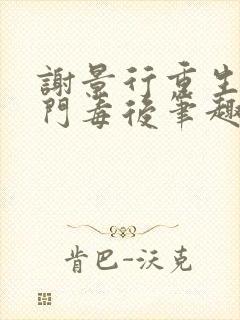 謝景行重生
門毒後筆趣
肯巴-沃克